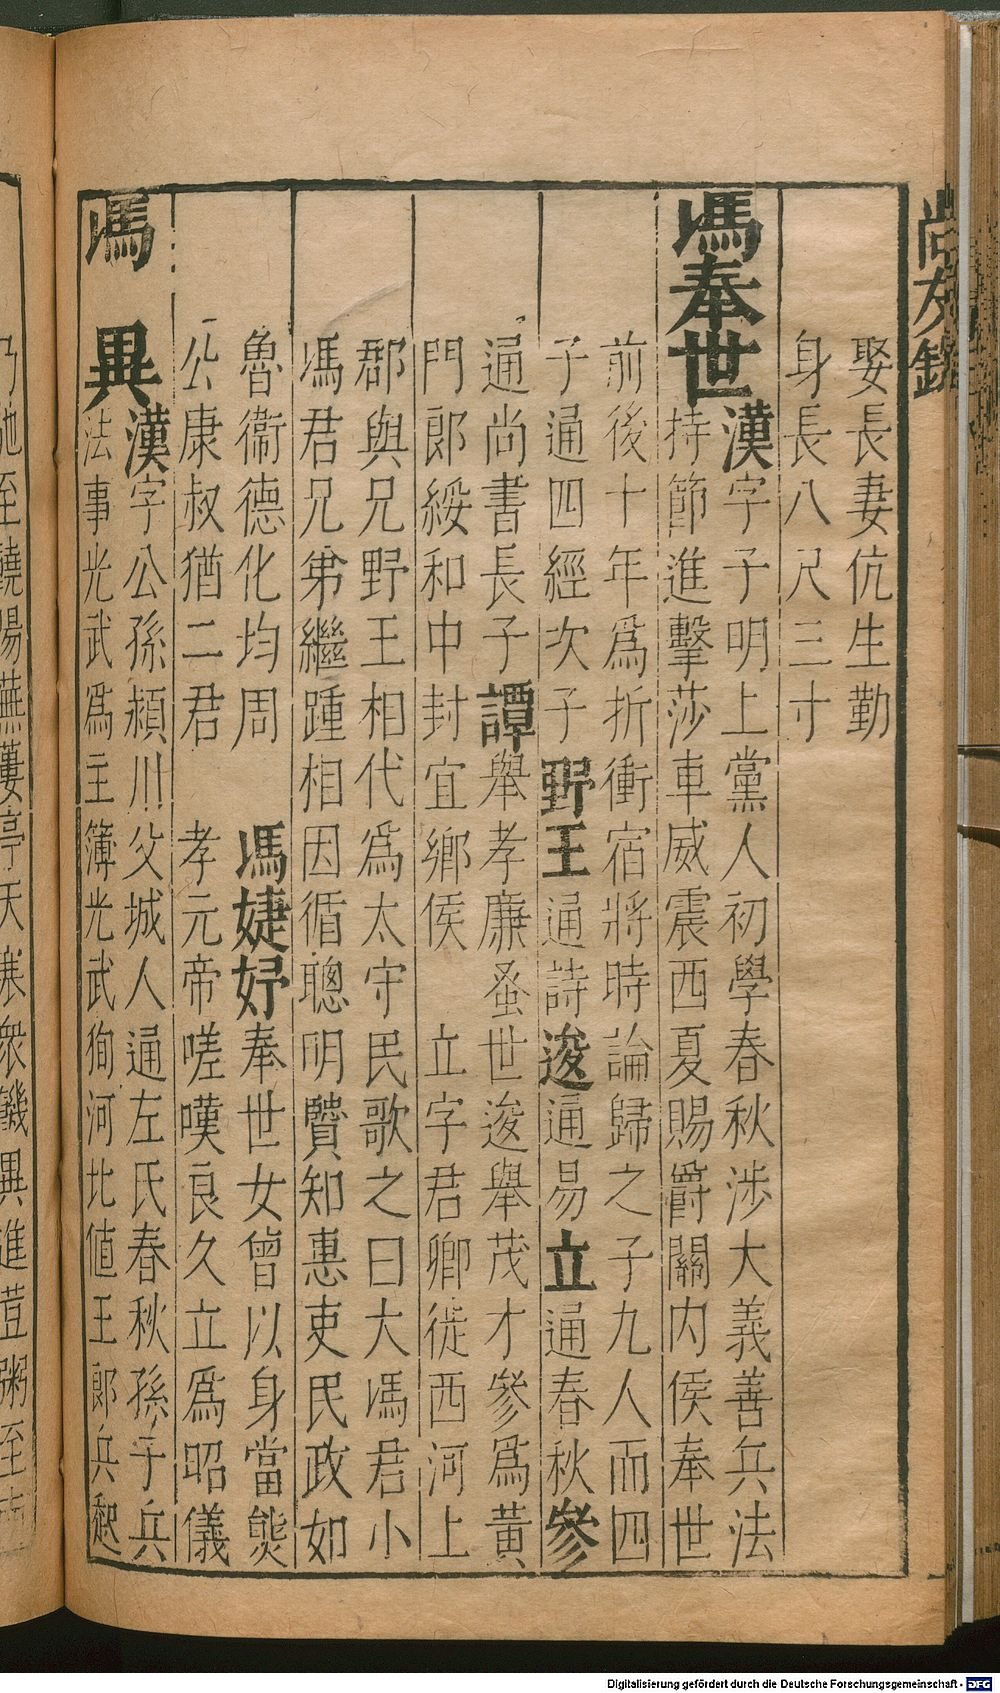 尚友錄
娶長妻伉生勤
身長八尺三寸
馮奉世
漢字子明上黨人初學春秋涉大義善兵法
持節進擊莎車威震西夏賜爵關內侯奉世
前後十年爲折衝宿將時論歸之子九人而四
子通四經次子野王通詩逡通易立通春秋參
通尚書長子譚舉孝廉蚤世逡舉茂才參爲黃
門郎綏和中封宜鄉侯 立字君卿徙西河上
郡與兄野王相代爲太守民歌之曰大馮君小
馮君兄弟繼踵相因循聰明賢知惠吏民政如
魯衞德化均周 馮婕妤奉世女曾以身當熊
公康叔猶二君 孝元帝嗟嘆良久立爲昭儀
馮 異
漢字公孫潁川父城人通左氏春秋孫子兵
法事光武爲主簿光武狥河北値王郎兵起
乃馳至饒陽蕪蔞亭天寒衆饑異進荳粥至